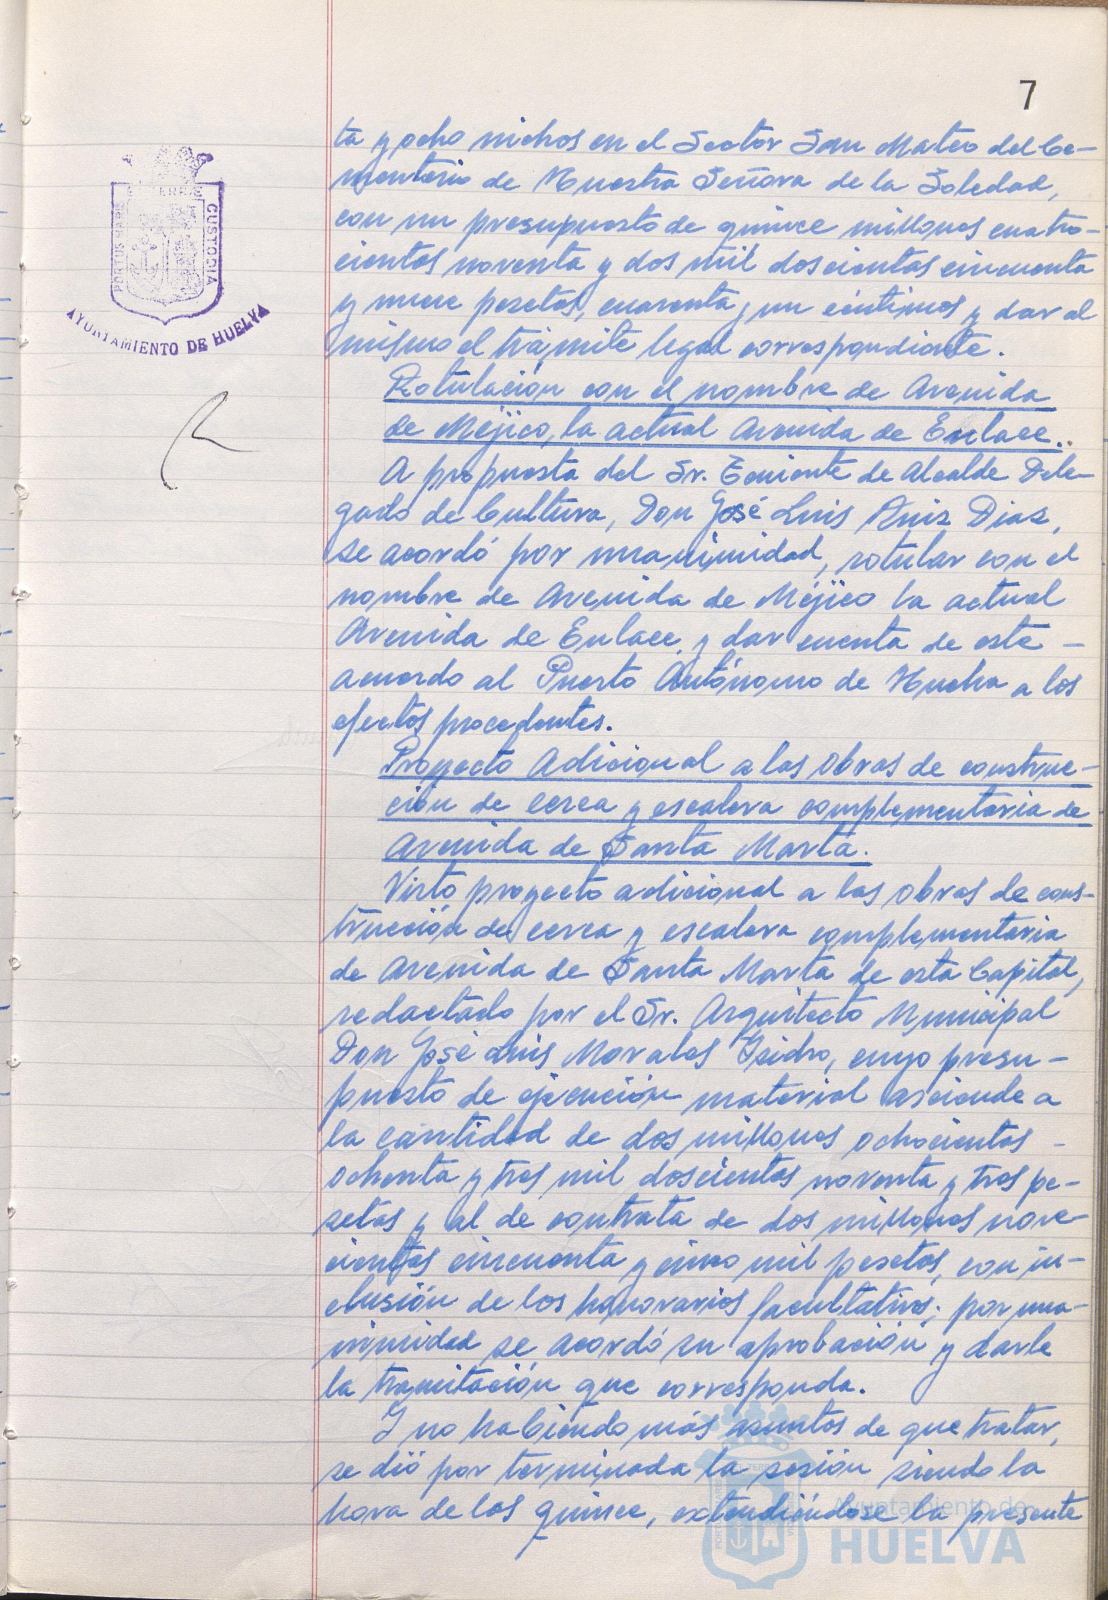 7
ta y ocho nichos en el Sector San Mateo del Ce-
menterio de Nuestra Señora de la Soledad,
con un presupuesto de quince millones cuatro-
cientas noventa y dos mil doscientas cincuenta
y nueve pesetas, cuarenta y un céntimos y dar al
mismo el trámite legal correspondiente.
Rotulación con el nombre de Avenida
de Méjico, la actual Avenida de Enlace..
A propuesta del Sr. Teniente de Alcalde Dele-
gado de Cultura, Don José Luis Ruiz Diaz,
se acordó por unanimidad, rotular con el
nombre de Avenida de Méjico la actual
Avenida de Enlace, y dar cuenta de este -
acuerdo al Puerto Autónomo de Huelva a los
efectos procedentes.
Proyecto Adicional a las obras de construc-
ción de cerca y escalera complementaria de
Avenida de Santa Marta.
Visto proyecto adicional a las obras de cons-
trucción de cerca y escalera complementaria
de Avenida de Santa Marta de esta Capital,
redactado por el Sr. Arquitecto Municipal
Don José Luis Morales Isidro, cuyo presu-
puesto de ejecución material asciende a
la cantidad de dos millones ochocientas -
ochenta y tres mil doscientas noventa y tres pe-
setas y al de contrata de dos millones nove-
cientas cincuenta y cinco mil pesetas, con in-
clusión de los honorarios facultativos; por una-
nimidad se acordó su aprobación y darle
la tramitación que corresponda.
Y no habiendo más asuntos de que tratar,
se dió por terminada la sesión siendo la
hora de las quince, extendiéndose la presente
PORTUS MARIS
ET TERRE
CUSTODIA
AYUNTAMIENTO DE HUELVA
Ayuntamiento de
HUELVA